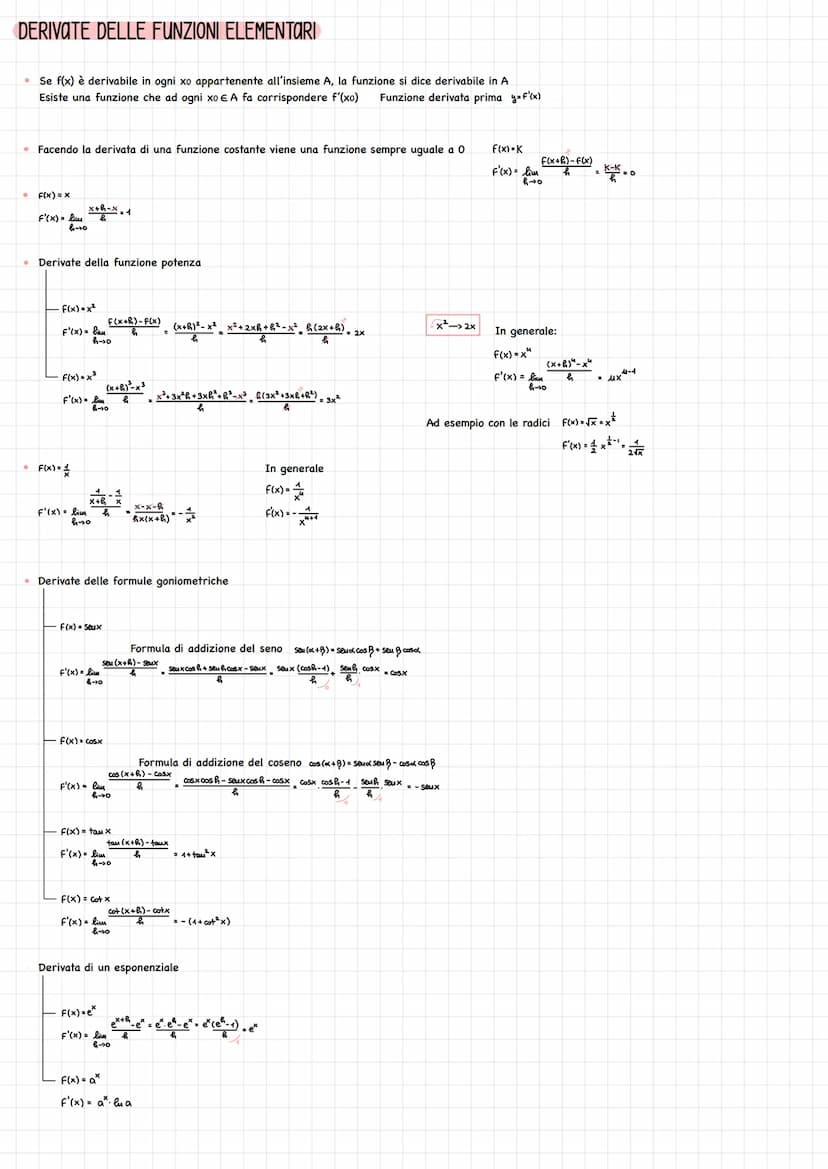 DERIVATE DELLE FUNZIONI ELEMENTARI
Se f(x) è derivabile in ogni x0 appartenente all'insieme A, la funzione si dice derivabile in A
Esiste una funzione che ad ogni x0 ∈ A fa corrispondere f'(x0) Funzione derivata prima y=F'(x)
Facendo la derivata di una funzione costante viene una funzione sempre uguale a 0
F(x)=K
F'(x) = lim h→0 (F(x+h)-F(x))/h = (K-K)/h = 0
F(x) = x
F'(x) = lim h→0 (x+h-x)/h = 1
Derivate della funzione potenza
F(x)=x²
F'(x) = lim h→0 (F(x+h)-F(x))/h = ((x+h)²-x²)/h = (x²+2xh+h²-x²)/h = h(2x+h)/h = 2x
x² → 2x
In generale:
F(x)=xⁿ
F'(x) = lim h→0 ((x+h)ⁿ-xⁿ)/h = nxⁿ⁻¹
F(x)=x³
F'(x) = lim h→0 ((x+h)³-x³)/h = (x³+3x²h+3xh²+h³-x³)/h = h(3x²+3xh+h²)/h = 3x²
Ad esempio con le radici F(x)=√x = x^(1/2)
F'(x) = 1/2 x^(1/2-1) = 1/(2√x)
F(x)=1/x
F'(x) = lim h→0 (1/(x+h) - 1/x)/h = (x-x-h)/(hx(x+h)) = -1/x²
In generale
F(x)= 1/xⁿ
F'(x) = - 1/xⁿ⁺¹
Derivate delle formule goniometriche
F(x) = senx
Formula di addizione del seno sen(α+β)=senα cosβ+senβ cosα
F'(x) = lim h→0 (sen(x+h)-senx)/h = (senx cosh+senh cosx-senx)/h = senx (cosh-1)/h + senh/h · cosx = cosx
F(x) = cosx
Formula di addizione del coseno cos(α+β)=senα senβ-cosα cosβ
F'(x) = lim h→0 (cos(x+h)-cosx)/h = (cosx cosh-senx cosh-cosx)/h = cosx · (cosh-1)/h - senh/h · senx = -senx
F(x) = tan x
F'(x) = lim h→0 (tan(x+h)-tanx)/h = 1+tan²x
F(x) = cot x
F'(x) = lim h→0 (cot(x+h)-cotx)/h = -(1+cot²x)
Derivata di un esponenziale
F(x)=eˣ
F'(x) = lim h→0 (eˣ⁺ʰ-eˣ)/h = (eˣ·eʰ-eˣ)/h = eˣ(eʰ-1)/h = eˣ
F(x) = aˣ
F'(x) = aˣ · ln a